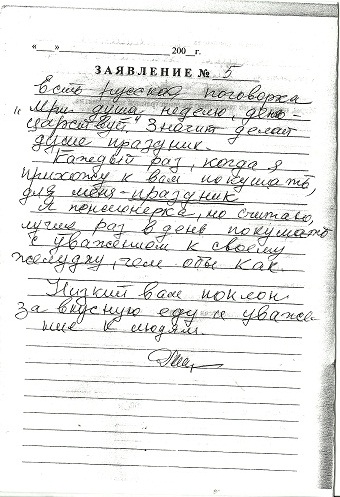 «___» ____________ 200__г.
ЗАЯВЛЕНИЕ № 5
Есть русская поговорка
"Мри душа неделю, день -
царствуй". Значит делай
душе праздник.
Каждый раз, когда я
прихожу к вам покушать,
для меня - праздник
Я пенсионерка, но считаю,
лучше раз в день покушать
с уважением к своему
желудку, чем абы как.
Низкий вам поклон
за вкусную еду и уваже-
ние к людям.